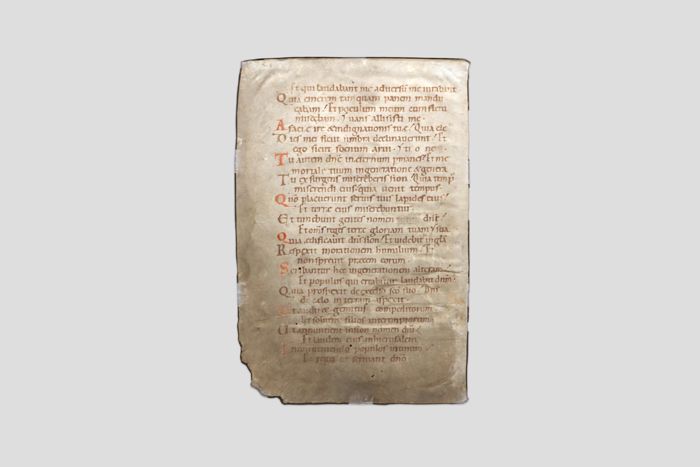 Et qui laudabant me adversū me iurabant
Quia cinerem tanquam panem mandu
cabam / Et poculum meum cum fletu
miscebam. / quia allisisti me.
A facie irę & indignationis tuę. / Quia ele
Dies mei sicut umbra declinaverunt. / Et
ego sicut foenum arui. /
Tu autem dnē inęternum pmanes / Et me
moriale tuum ingeneratione & genera
Tu exsurgens misereberis sion. / Quia temp
miserendi eius quia venit tempus.
Qnō placuerunt servis tuis lapides eius
Et terrę eius miserebuntur.
Et timebunt gentes nomen dnē
Et oms reges terrę gloriam tuam / quia
Quia ędificavit dns sion / Et videbit in glā
Respexit inorationem humilium / Et
non sprevit pręcem eorum.
Scribantur hęc ingenerationem alteram
Et populus qui creabitur laudabit dnm.
Quia prospexit de excelso scō suo / Dns
de cęlo in terram aspexit.
Ut audiret gemitus compeditorum
solveret filios interemptorum
Ut annuntient insion nomen dni
Et laudem eius inhierusalem
populos inunum
Et reges ut serviant dnō